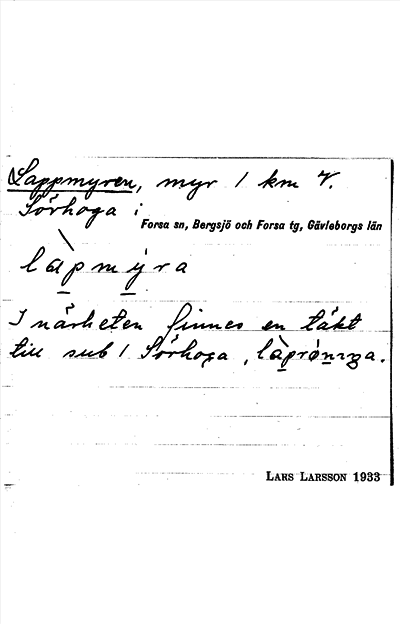 Lappmyren, myr 1 km V.
Sörhoga i
Forsa sn, Bergsjö och Forsa tg, Gävleborgs län
làpmýra
I närheten finnes en täkt
till sub 1 Sörhoga,
LARS LARSSON 1933